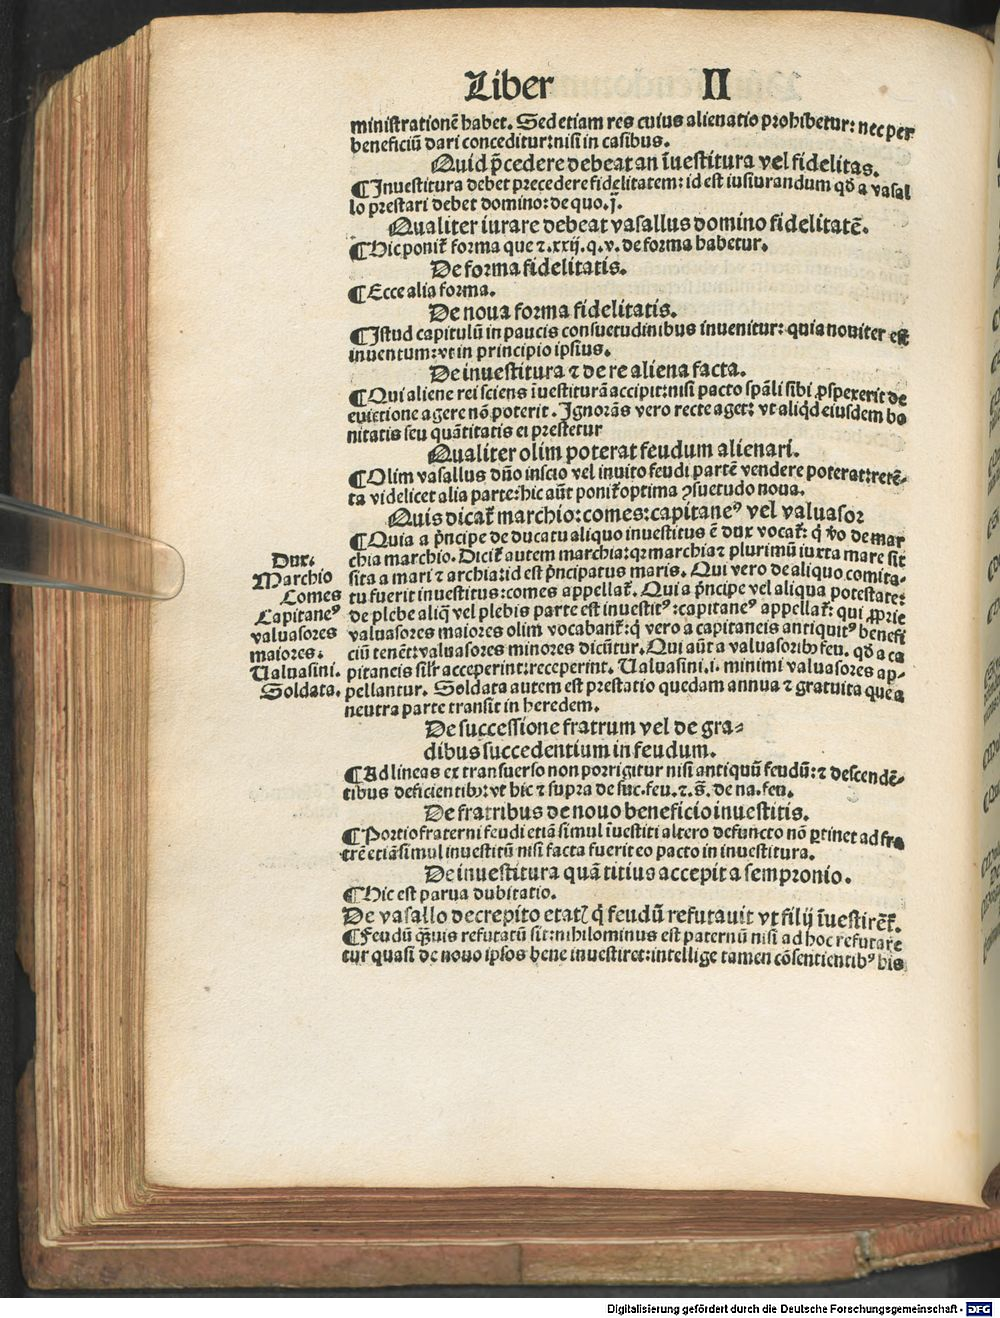 Liber II
ministrationē habet. Sed etiam res cuius alienatio prohibetur: nec per
beneficiū dari conceditur: nisi in casibus.
Quid p̄cedere debeat an īuestitura vel fidelitas.
¶ Inuestitura debet precedere fidelitatem: id est iusiurandum qđ a vasal
lo prestari debet domino: de quo. j̄.
Qualiter iurare debeat vasallus domino fidelitatē.
¶ Hic ponit̄ forma que ⁊. xxij. q. v. de forma habetur.
De forma fidelitatis.
¶ Ecce alia forma.
De noua forma fidelitatis.
¶ Istud capitulū in paucis consuetudinibus inuenitur: quia nouiter est
inuentum: vt in principio ipsius.
De inuestitura ⁊ de re aliena facta.
¶ Qui aliene rei sciens īuestiturā accipit: nisi pacto sp̄ali sibi ꝓspexerit de
euictione agere nō poterit. Ignorās vero recte aget: vt aliqd eiusdem bo
nitatis seu quātitatis ei prestetur
Qualiter olim poterat feudum alienari.
¶ Olim vasallus dn̄o inscio vel inuito feudi partē vendere poterat: retē-
ta videlicet alia parte: hic aūt ponit̄ optima ꝯsuetudo noua.
Quis dicat̄ marchio: comes: capitaneꝰ vel valuasor
¶ Quia a p̄ncipe de ducatu aliquo inuestitus ē dux vocat̄: q̄ v̄o de mar
chia marchio. Dicit̄ autem marchia: qꝛ marchia ⁊ plurimū iuxta mare sit
sita a mari ⁊ archia: id est p̄ncipatus maris. Qui vero de aliquo comita-
tu fuerit inuestitus: comes appellat̄. Qui a p̄ncipe vel aliqua potestate:
de plebe aliq̄ vel plebis parte est inuestitꝰ: capitaneꝰ appellat̄: qui ꝓprie
valuasores maiores olim vocabant̄: q̄ vero a capitaneis antiquitꝰ benefi
ciū tenēt: valuasores minores dicūtur. Qui aūt a valuasoribꝫ feu. qđ a ca
pitaneis silr̄ acceperint: receperint. Ualuasini .i. minimi valuasores ap-
pellantur. Soldata autem est prestatio quedam annua ⁊ gratuita que a
neutra parte transit in heredem.
Dux.
Marchio
Comes
Capitaneꝰ
valuasores
maiores.
Ualuasini.
Soldata.
De successione fratrum vel de gra-
dibus succedentium in feudum.
¶ Ad lineas ex transuerso non porrigitur nisi antiquū feudū: ⁊ descendē-
tibus deficientibꝫ: vt hic ⁊ supra de suc. feu. ⁊. s̄. de na. feu.
De fratribus de nouo beneficio inuestitis.
¶ Portio fraterni feudi etiā simul īuestiti altero defuncto nō ꝑtinet ad fra
trē etiā simul inuestitū nisi facta fuerit eo pacto in inuestitura.
De inuestitura quā titius accepit a sempronio.
¶ Hic est parua dubitatio.
De vasallo decrepito etatꝭ q̄ feudū refutauit vt filij īuestirēt̄.
¶ Feudū q̄uis refutatū sit: nihilominus est paternū nisi ad hoc refutare
tur quasi de nouo ipsos bene inuestiret: intellige tamen cōsentientibꝰ his
Digitalisierung gefördert durch die Deutsche Forschungsgemeinschaft - DFG